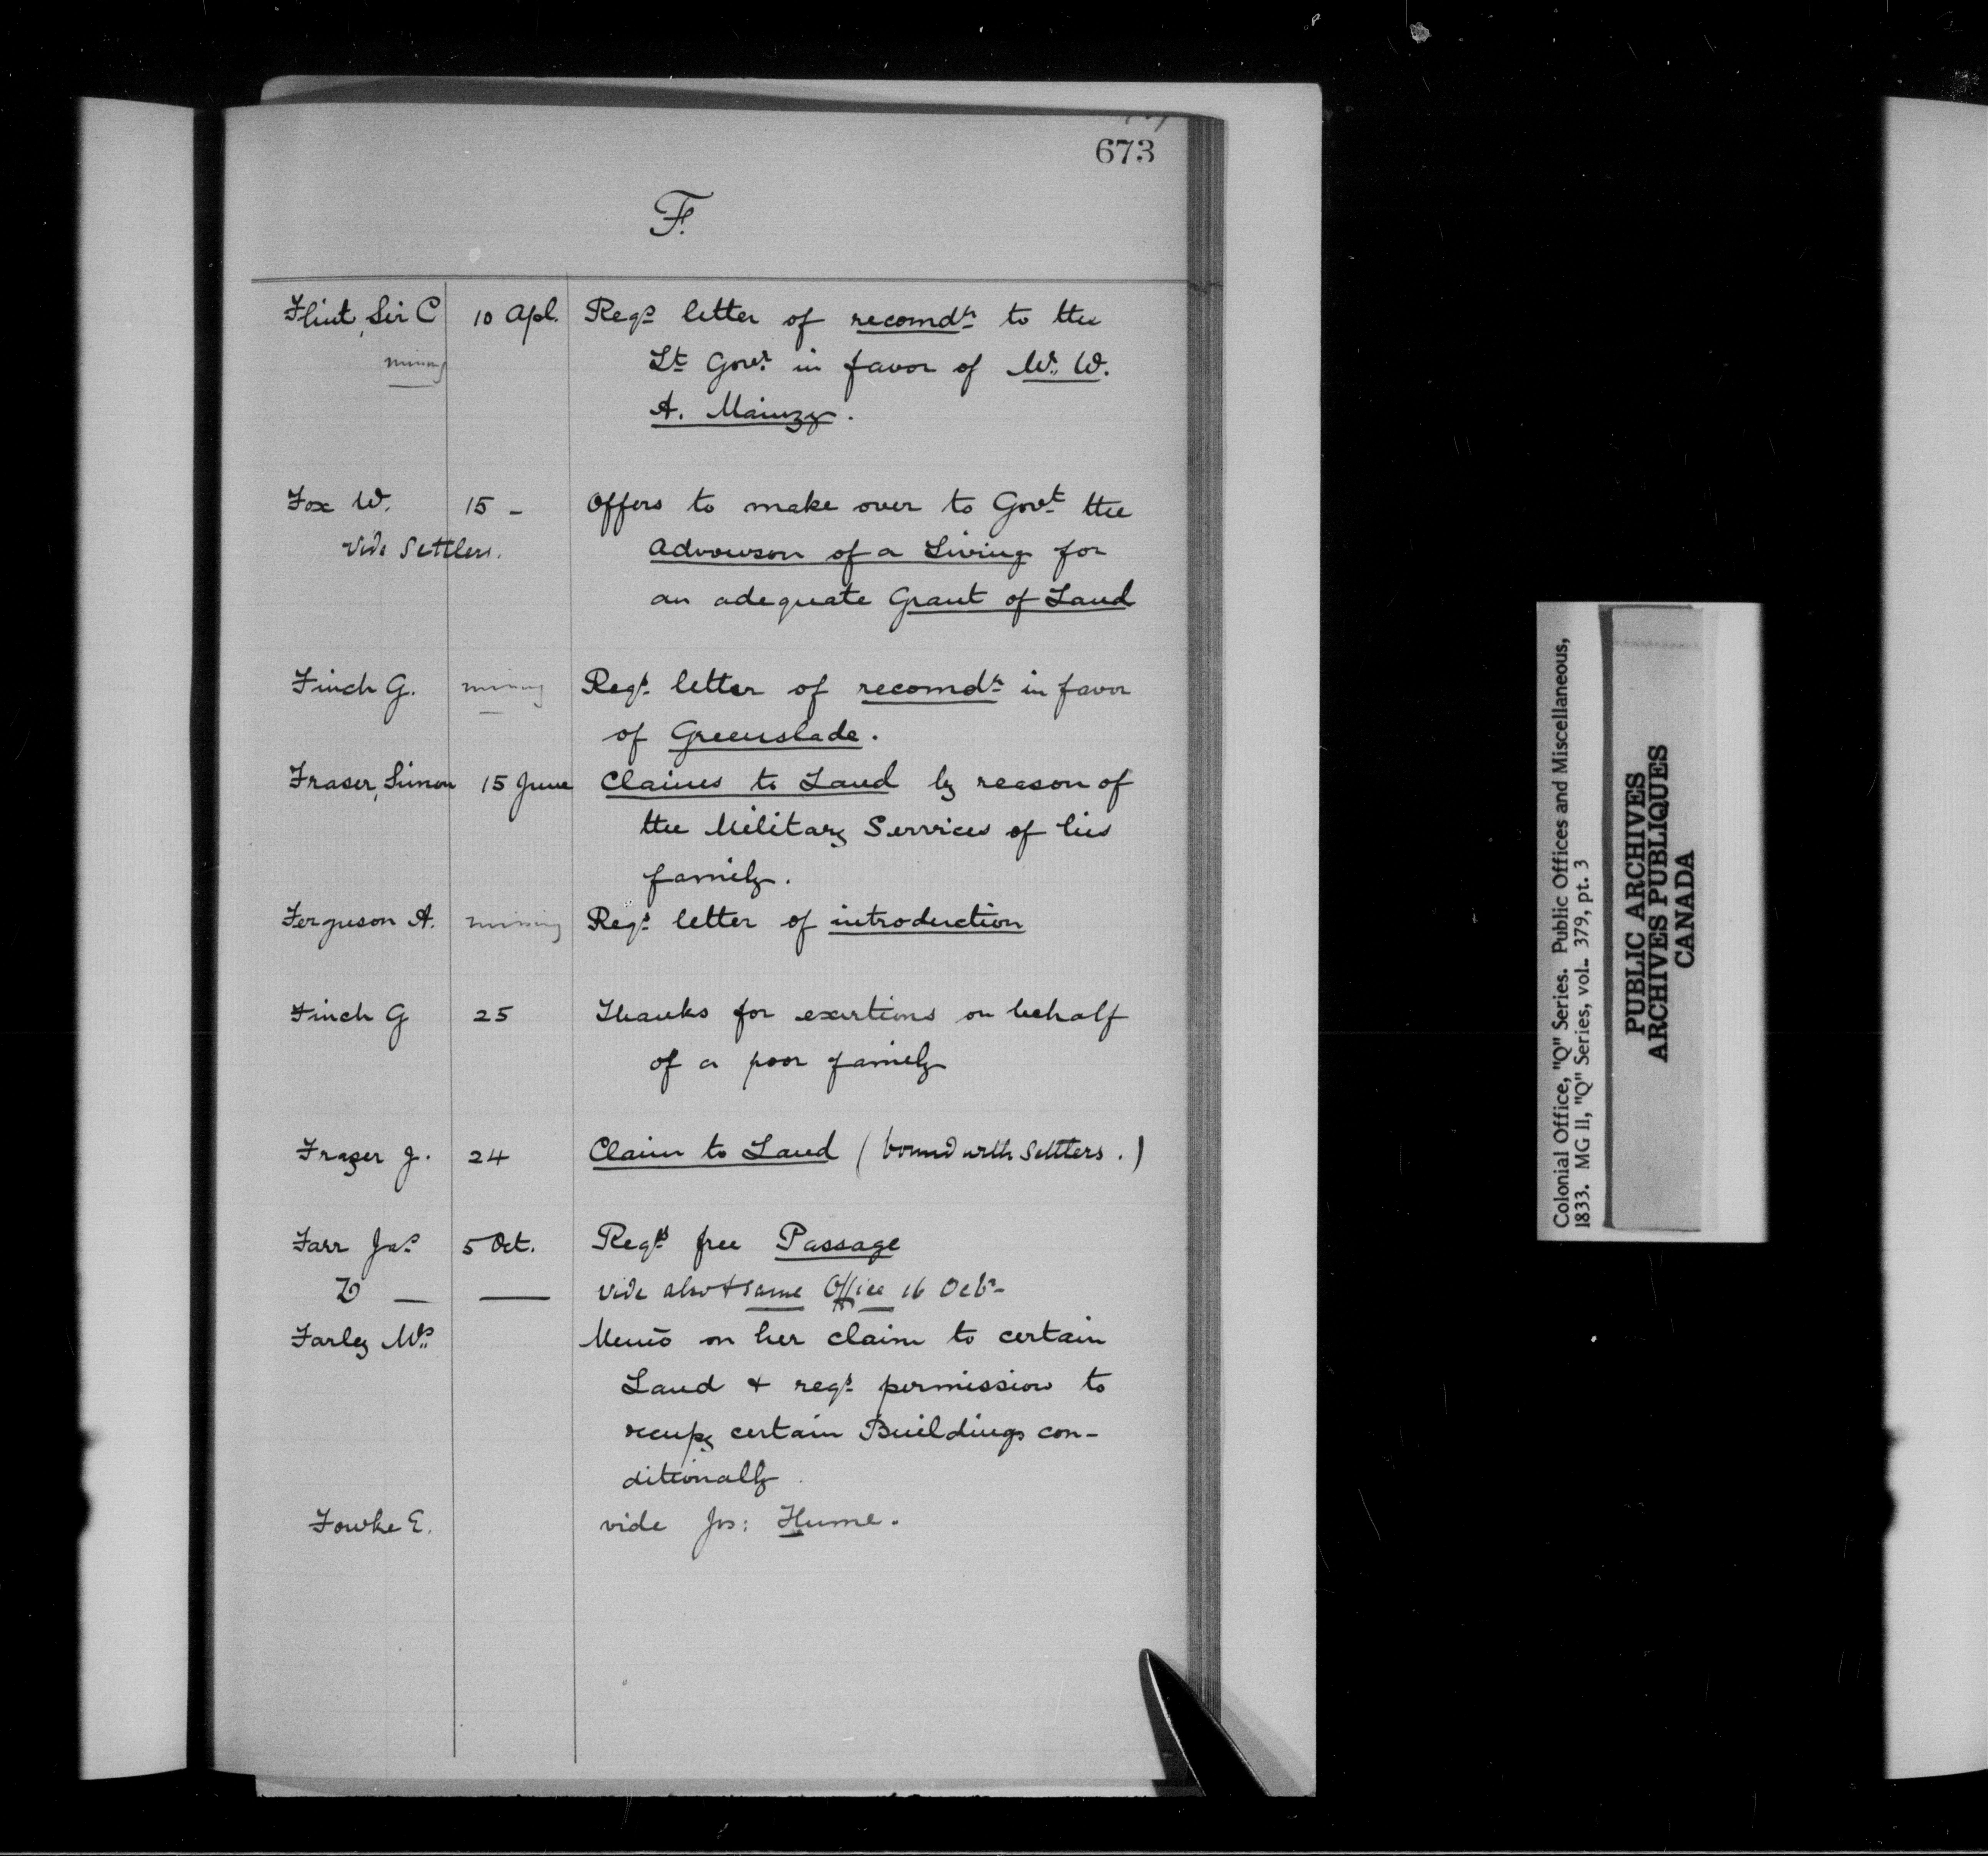 673
F.
Flint, Sir C 10 Apl. Reqs letter of recomdn to the
missing Lt Govr in favor of Mr W.
A. Mainzy.
Fox W. 15 - Offers to make over to Govt the
vide Settlers. Advowson of a Living for
an adequate Grant of Land
Finch G. missing Reqs letter of recomdn in favor
of Greenslade.
Fraser, Simon 15 June Claims to Land by reason of
the Military Services of his
family.
Ferguson A. missing Reqs letter of introduction
Finch G 25 Thanks for exertions on behalf
of a poor family
Frazer J. 24 Claim to Land (bound with Settlers.)
Farr Jas 5 Oct. Reqts free Passage
Do — — vide also same Office 16 Octr
Farley Mrs Memo on her claim to certain
Land & reqs permission to
occupy certain Buildings con-
ditionally
Fowke E. vide Jos: Hume.
Colonial Office, "Q" Series. Public Offices and Miscellaneous,
1833. MG 11, "Q" Series, vol. 379, pt. 3
PUBLIC ARCHIVES
ARCHIVES PUBLIQUES
CANADA